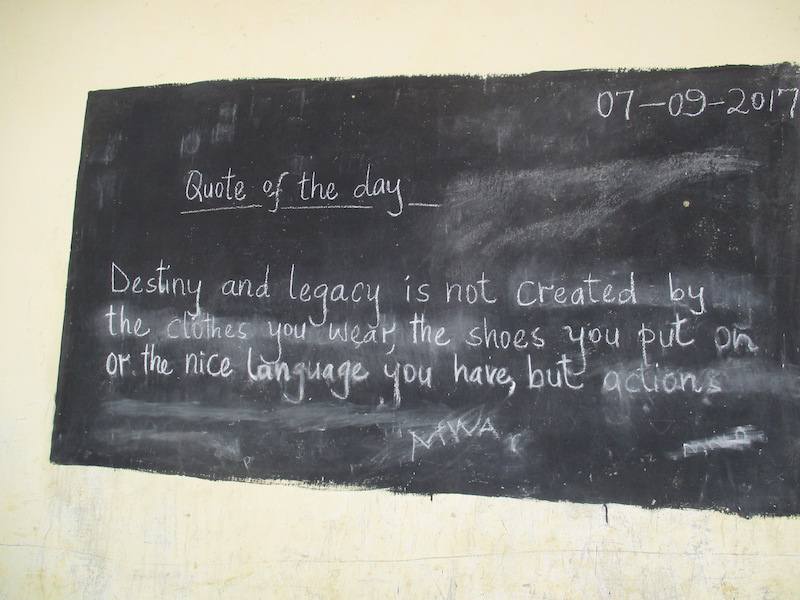 07-09-2017
Quote of the day
Destiny and legacy is not created by
the clothes you wear, the shoes you put on
or the nice language you have, but actions
MWA